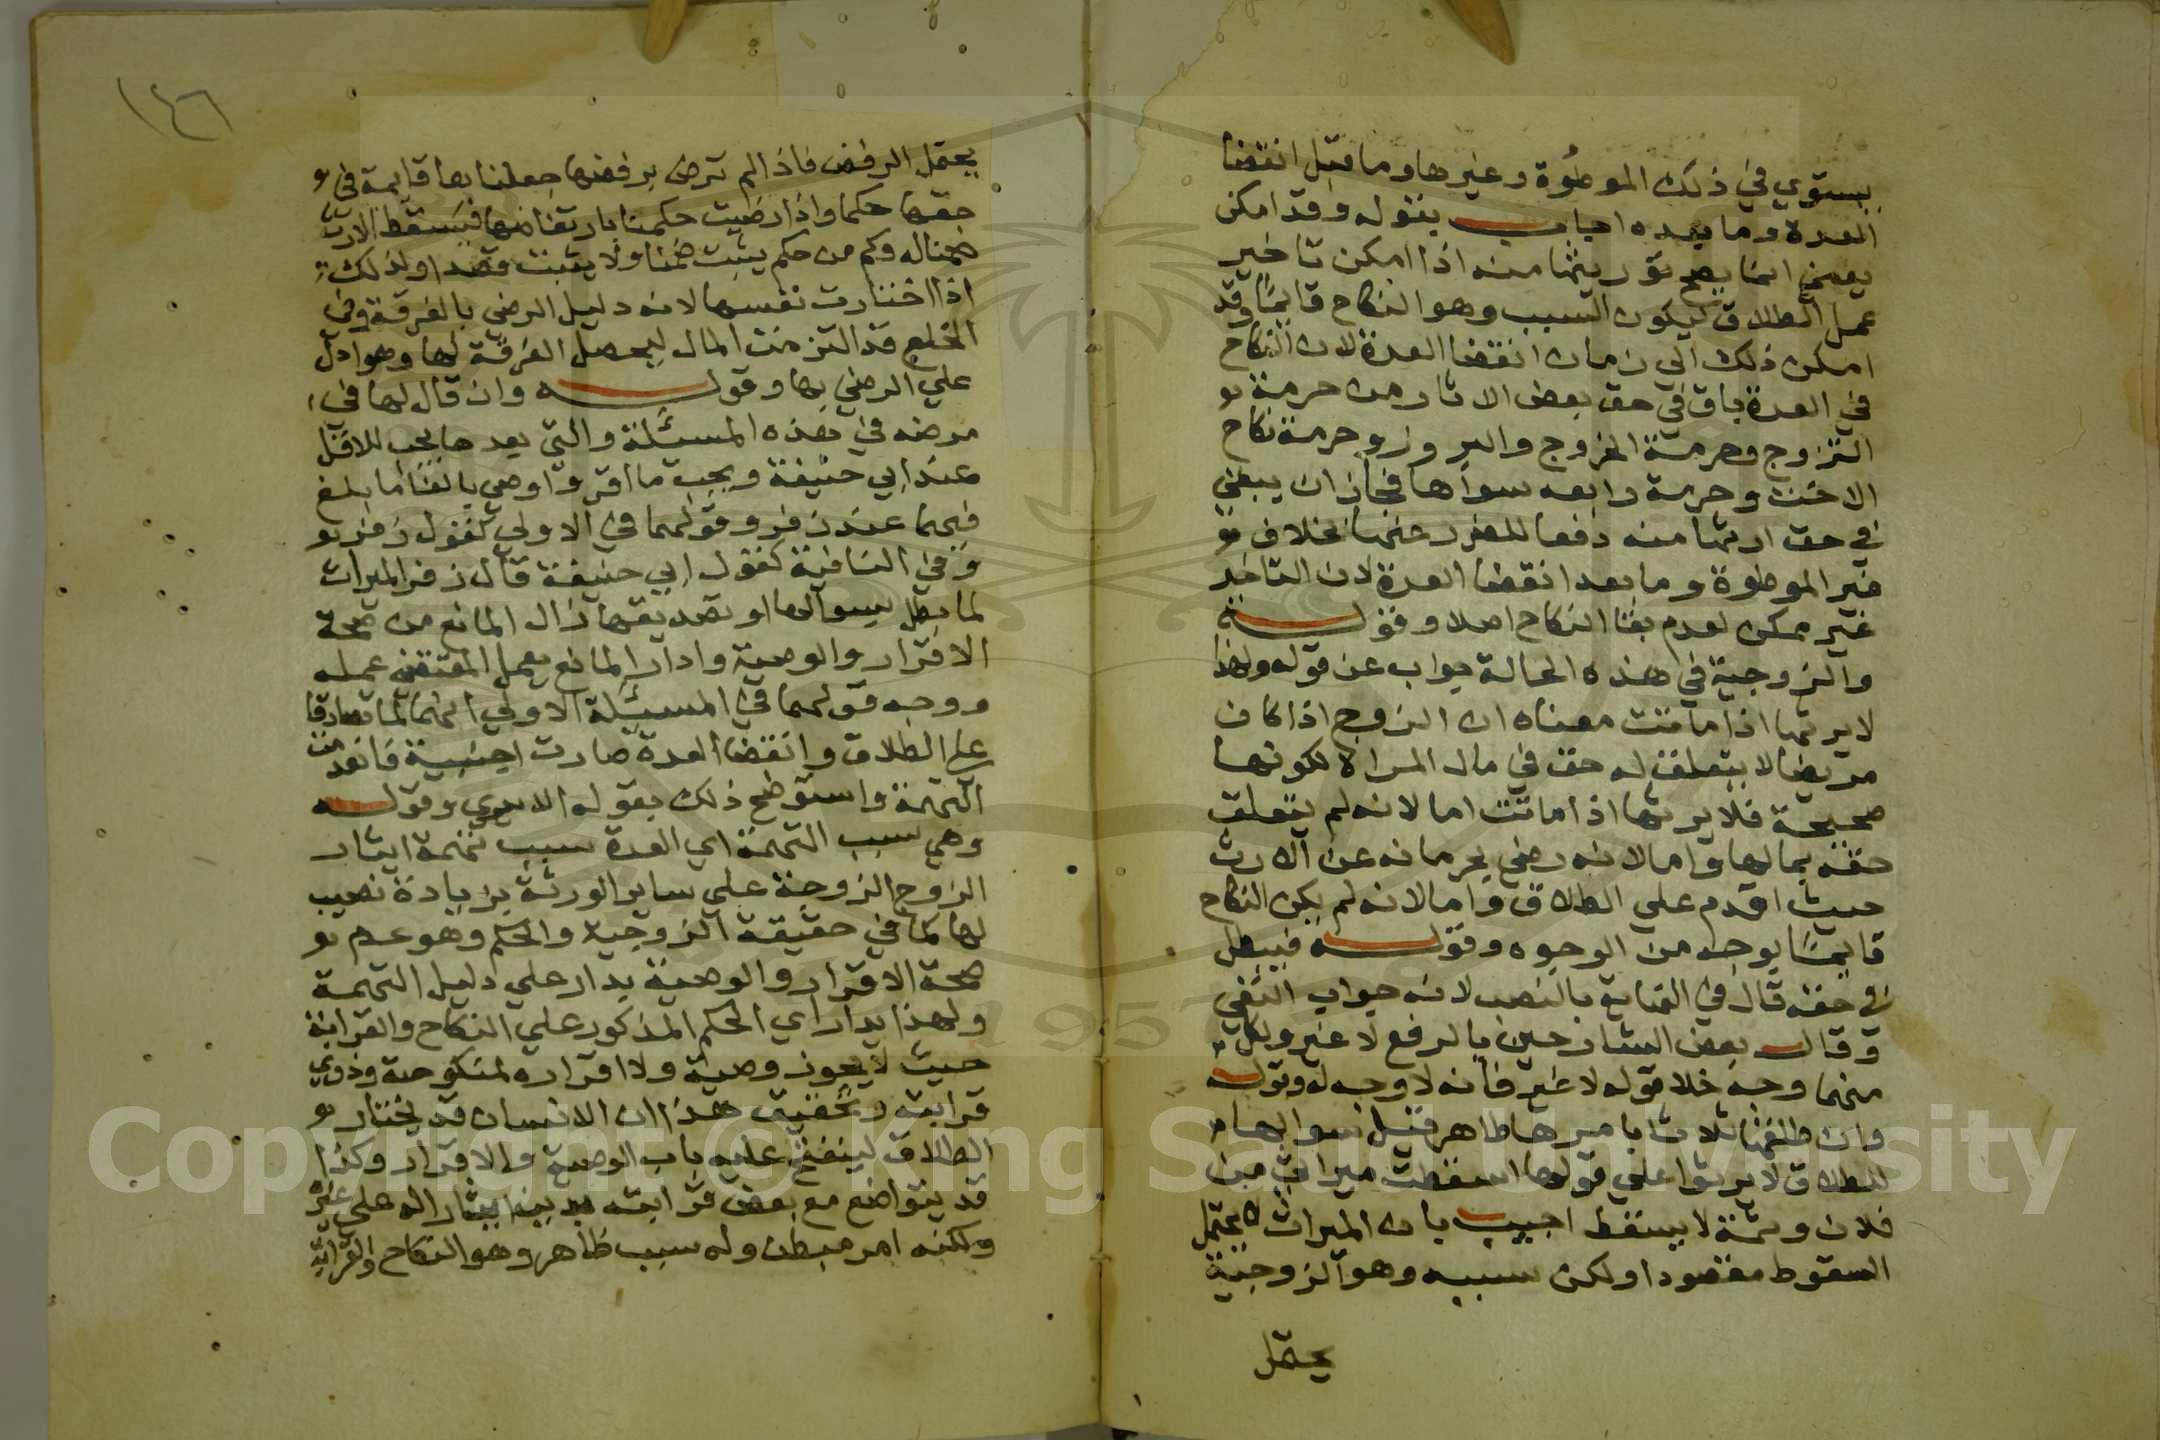 يستوي في ذلك الموطوة وغيرها وما قبل انقضا
العدة وما بعده اجاب بقوله وقد امكن
يعني انما يصح توريثها منه اذا امكن تاخير
عمل الطلاق ليكون السبب وهو النكاح قايما وقد
امكن ذلك الي زمان انقضا العدة لان النكاح
في العدة باق في حق بعض الاثار من حرمة
التزوج وحرمة الخروج والبروز وحرمة نكاح
الاخت وحرمة رابعه سواها فجاز ان يبقي
في حق ارثها منه دفعا للضرر عنها بخلاف
غير الموطوة وما بعد انقضا العدة لان التاخير
غير ممكن لعدم بقا النكاح اصلا وقوله
والزوجية في هذه الحالة جواب عن قوله ولهذا
لا يرثها اذا ماتت معناه ان الزوج اذا كان
مريضا لا يتعلق له حق في مال المراة لكونها
صحيحة فلا يرثها اذا ماتت اما لانه لم يتعلق
حقه بمالها واما لانه رضي بحرمانه عن الارث
حيث اقدم علي الطلاق واما لانه لم يكن النكاح
قايما بوجه من الوجوه وقوله فيبطل
في حقه قال في النهاية بالنصب لانه جواب النفي
وقال بعض الشارحين بالرفع لا غير ولكل
منهما وجه خلا قوله لا غير فانه لا وجه له وقوله
وان طلقها ثلاثا بامرها ظاهر قيل سوالها
للطلاق لا يربوا علي قولها اسقطت ميراثي من
فلان وثمة لا يسقط اجيب بان الميراث لا يحتمل
السقوط مقصودا ولكن سببه وهو الزوجية
يحتمل
١٤٦
يحتمل الرفض فاذا لم ترض برفضها جعلناها قايمة في
حقها حكما واذا رضيت حكمنا بارتفاضها فيسقط الارث
ضمنا له وكم من حكم يثبت ضمنا ولا يثبت قصدا ولذلك
اذا اختارت نفسها لانه دليل الرضي بالفرقة وفي
الخلع قد التزمت المال ليحصل الفرقة لها وهو ادل
علي الرضي بها وقوله وان قال لها في
مرضه في هذه المسئلة والتي بعدها يجب للاقل
عند ابي حنيفة ويجب ما اقر واوصي بالغا ما بلغ
فيهما عند زفر وقولهما في الاولي كقول زفر
وفي الثانية كقول ابي حنيفة قال زفر الميراث
لما بطل بسوالها او تصديقها زال المانع من صحة
الاقرار والوصية واذا زال المانع يعمل المقتضي عمله
ووجه قولهما في المسئلة الاولي انهما لما تصادقا
علي الطلاق وانقضا العدة صارت اجنبية فانعدمت
التهمة واستوضح ذلك بقوله الا يري وقوله
وهي سبب التهمة اي العدة سبب تهمة ايثار
الزوج الزوجة علي ساير الورثة بزيادة نصيب
لها كما في حقيقة الزوجية والحكم وهو عدم
صحة الاقرار والوصية يدار علي دليل التهمة
ولهذا يدار اي الحكم المذكور علي النكاح والقرابة
حيث لا يجوز وصية ولا اقراره لمنكوحته وذوي
قرابته وتحقيق هذا ان الانسان قد يختار
الطلاق لينفتح عليه باب الوصية والاقرار وكذا
قد يتواضع مع بعض قرابته بدين ايثارا له علي غيره
ولكنه امر مبطن وله سبب ظاهر وهو النكاح والقرابة
Copyright © King Saud University
1957